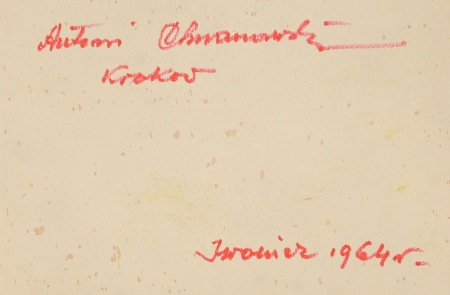 Antoni
Kraków
Iwonicz 1964 r.